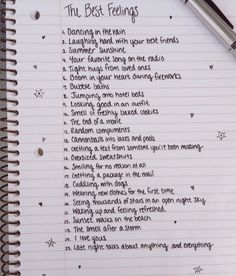 The Best Feelings
1. Dancing in the rain
2. Laughing hard with your best friends
3. Summer Sunshine
4. Your favorite song on the radio
5. Tight hugs from loved ones
6. Boom in your heart during fireworks
7. Bubble baths
8. Jumping onto hotel beds
9. Looking good in an outfit
10. Smell of freshly baked cookies
11. The end of a movie
12. Random compliments
13. Cannonballs into lakes and pools
14. Getting a text from someone you've been missing
15. Oversized sweatshirts
16. Smiling for no reason at all
17. Getting a package in the mail
18. Cuddling with dogs
19. Wearing new clothes for the first time
20. Seeing thousands of stars in an open night sky
21. Waking up and feeling refreshed
22. Sunset walks on the beach
23. The smell after a storm
24. I love yous
25. Late night talks about anything and everything